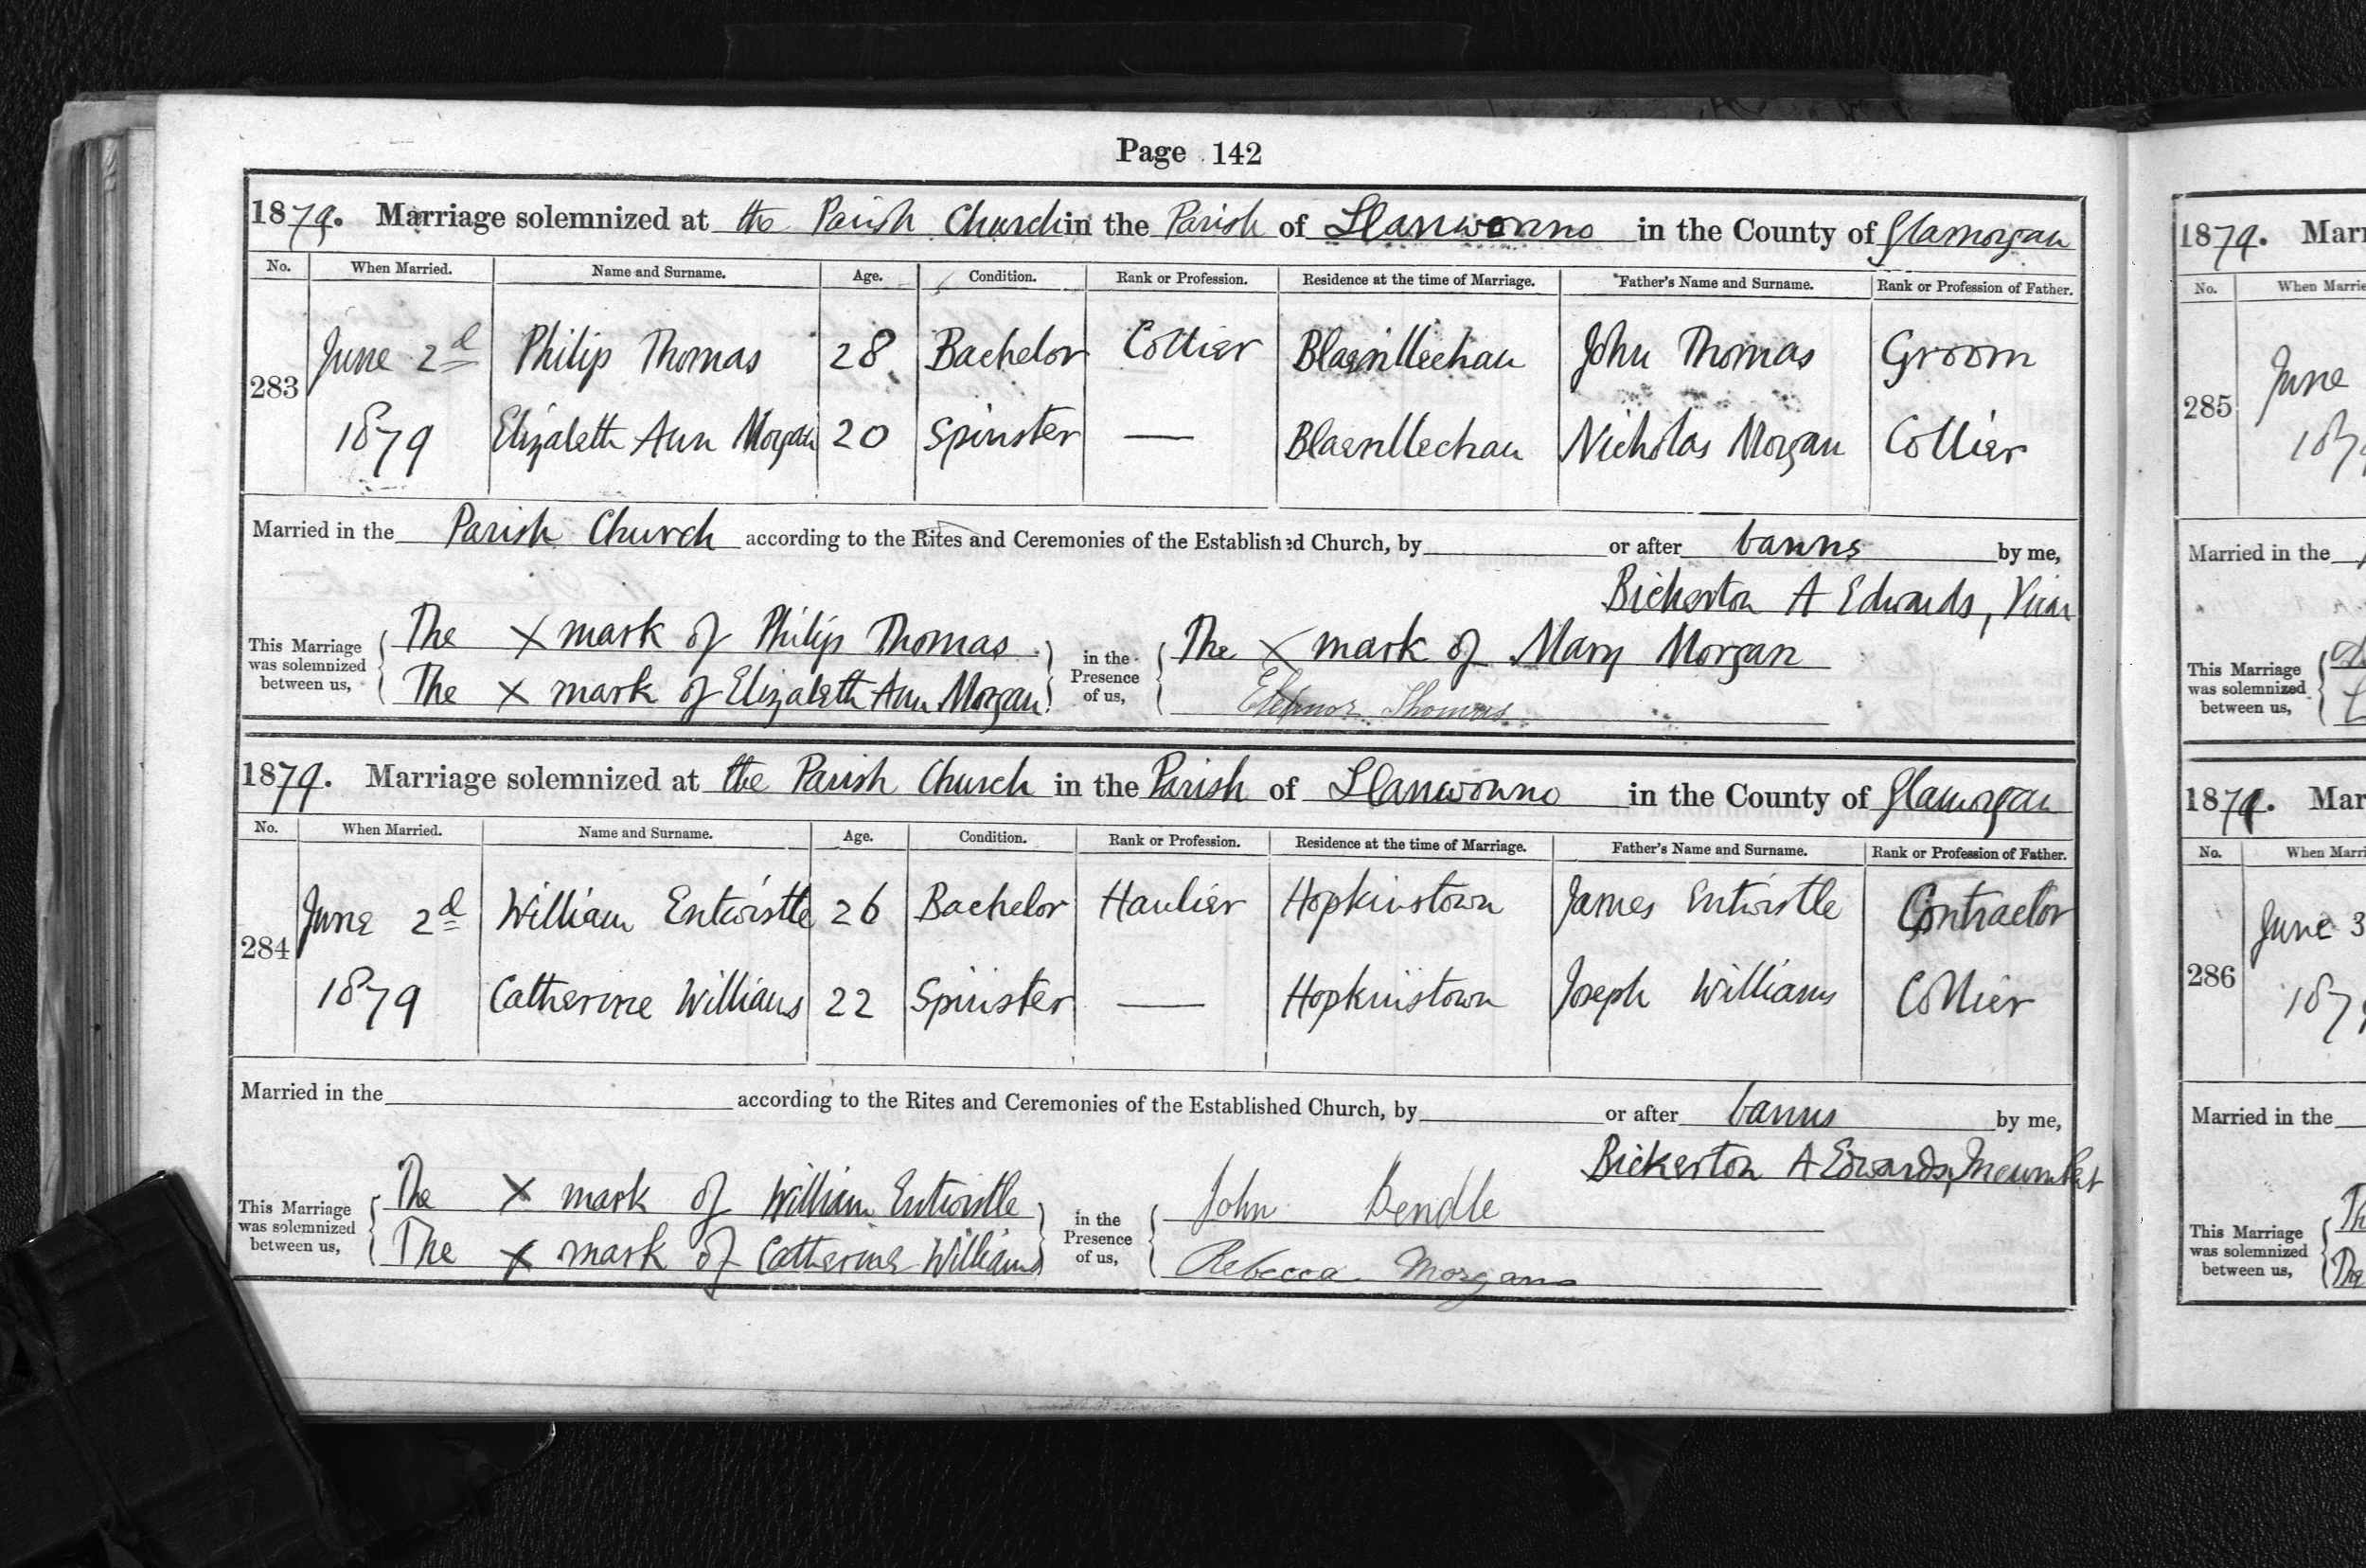 Page 142
1879. Marriage solemnized at the Parish Church in the Parish of Llanwonno in the County of Glamorgan
No. When Married. Name and Surname. Age. Condition. Rank or Profession. Residence at the time of Marriage. Father's Name and Surname. Rank or Profession of Father.
283 June 2d Philip Thomas 28 Bachelor Collier Blaenllechau John Thomas Groom
1879 Elizabeth Ann Morgan 20 Spinster — Blaenllechau Nicholas Morgan Collier
Married in the Parish Church according to the Rites and Ceremonies of the Established Church, by or after banns by me,
Bickerton A Edwards, Vicar
This Marriage was solemnized between us, The X mark of Philip Thomas in the Presence of us, The X mark of Mary Morgan
The X mark of Elizabeth Ann Morgan Elenor Thomas
1879. Marriage solemnized at the Parish Church in the Parish of Llanwonno in the County of Glamorgan
No. When Married. Name and Surname. Age. Condition. Rank or Profession. Residence at the time of Marriage. Father's Name and Surname. Rank or Profession of Father.
284 June 2d William Entwistle 26 Bachelor Haulier Hopkinstown James Entwistle Contractor
1879 Catherine Williams 22 Spinster — Hopkinstown Joseph Williams Collier
Married in the according to the Rites and Ceremonies of the Established Church, by or after banns by me,
Bickerton A Edwards, Incumbent
This Marriage was solemnized between us, The X mark of William Entwistle in the Presence of us, John Bendle
The X mark of Catherine Williams Rebecca Morgans
1879. Marr
No. When Marrie
285 June
187
Married in the
This Marriage
was solemnized
between us,
1879. Mar
No. When Marri
286 June 3
187
Married in the
This Marriage
was solemnized
between us,
Th
The